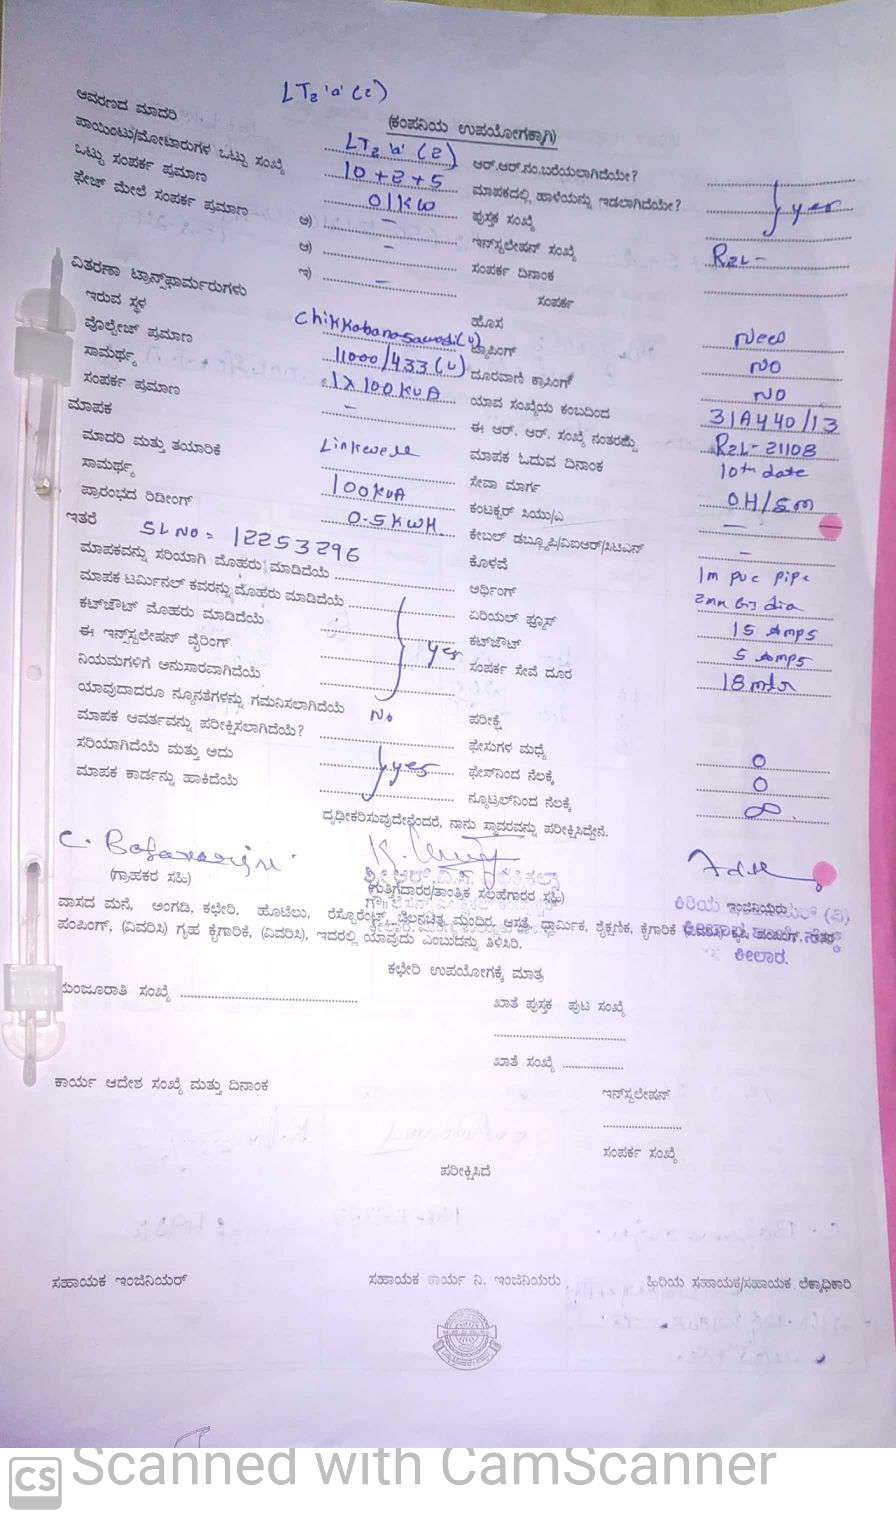 LT2 'a' (2)
(ಕಂಪನಿಯ ಉಪಯೋಗಕ್ಕಾಗಿ)
ಆವರಣದ ಮಾದರಿ LT2 'a' (2) ಆರ್.ಆರ್.ನಂ.ಬರೆಯಲಾಗಿದೆಯೇ?
ಪಾಯಿಂಟು/ಮೋಟಾರುಗಳ ಒಟ್ಟು ಸಂಖ್ಯೆ 10+2+5 ಮಾಪಕದಲ್ಲಿ ಹಾಳೆಯನ್ನು ಇಡಲಾಗಿದೆಯೇ? } yes
ಒಟ್ಟು ಸಂಪರ್ಕ ಪ್ರಮಾಣ 01KW ಪುಸ್ತಕ ಸಂಖ್ಯೆ
ಫೇಜ್ ಮೇಲೆ ಸಂಪರ್ಕ ಪ್ರಮಾಣ ಅ) – ಇನ್‌ಸ್ಟಲೇಷನ್ ಸಂಖ್ಯೆ R2L-
ಆ) – ಸಂಪರ್ಕ ದಿನಾಂಕ
ಇ) – ಸಂಪರ್ಕ
ವಿತರಣಾ ಟ್ರಾನ್ಸ್‌ಫಾರ್ಮರುಗಳು ಹೊಸ New
ಇರುವ ಸ್ಥಳ Chikkabanasavadi(v) ಟ್ಯಾಪಿಂಗ್ NO
ವೊಲ್ಟೇಜ್ ಪ್ರಮಾಣ 11000/433(v) ದೂರವಾಣಿ ಕ್ರಾಸಿಂಗ್ NO
ಸಾಮರ್ಥ್ಯ 1x100KVA ಯಾವ ಸಂಖ್ಯೆಯ ಕಂಬದಿಂದ 31A440/13
ಸಂಪರ್ಕ ಪ್ರಮಾಣ – ಈ ಆರ್. ಆರ್. ಸಂಖ್ಯೆ ನಂತರದ್ದು R2L-21108
ಮಾಪಕ ಮಾಪಕ ಓದುವ ದಿನಾಂಕ 10th date
ಮಾದರಿ ಮತ್ತು ತಯಾರಿಕೆ Linkwell ಸೇವಾ ಮಾರ್ಗ OH/Sm
ಸಾಮರ್ಥ್ಯ 100KVA ಕಂಟಕ್ಟರ್ ಸಿಯು/ಎ –
ಪ್ರಾರಂಭದ ರಿಡೀಂಗ್ 0.5KWH ಕೇಬಲ್ ಡಬ್ಲ್ಯೂಪಿ/ವಿಐಆರ್/ಸಿಟಿಎಸ್ –
ಇತರೆ SL NO = 12253296 ಕೊಳವೆ 1m pvc pipe
ಮಾಪಕವನ್ನು ಸರಿಯಾಗಿ ಮೊಹರು ಮಾಡಿದೆಯೆ ಅರ್ಥಿಂಗ್ 2mm GI dia
ಮಾಪಕ ಟರ್ಮಿನಲ್ ಕವರನ್ನು ಮೊಹರು ಮಾಡಿದೆಯೆ ಏರಿಯಲ್ ಫ್ಯೂಸ್ 15 Amps
ಕಟ್‌ಔಟ್ ಮೊಹರು ಮಾಡಿದೆಯೆ ಕಟ್‌ಔಟ್ 5 Amps
ಈ ಇನ್ಸ್‌ಸ್ಟಲೇಷನ್ ವೈರಿಂಗ್ } yes ಸಂಪರ್ಕ ಸೇವೆ ದೂರ 18 mtr
ನಿಯಮಗಳಿಗೆ ಅನುಸಾರವಾಗಿದೆಯೆ
ಯಾವುದಾದರೂ ನ್ಯೂನತೆಗಳನ್ನು ಗಮನಿಸಲಾಗಿದೆಯೆ No ಪರೀಕ್ಷೆ
ಮಾಪಕ ಆವರ್ತವನ್ನು ಪರೀಕ್ಷಿಸಲಾಗಿದೆಯೆ? ಫೇಸುಗಳ ಮಧ್ಯೆ 0
ಸರಿಯಾಗಿದೆಯೆ ಮತ್ತು ಅದು } yes ಫೇಸ್‌ನಿಂದ ನೆಲಕ್ಕೆ 0
ಮಾಪಕ ಕಾರ್ಡನ್ನು ಹಾಕಿದೆಯೆ ನ್ಯೂಟ್ರಲ್‌ನಿಂದ ನೆಲಕ್ಕೆ ∞
ದೃಢೀಕರಿಸುವುದೇನೆಂದರೆ, ನಾನು ಸ್ಥಾವರವನ್ನು ಪರೀಕ್ಷಿಸಿದ್ದೇನೆ.
(ಗ್ರಾಹಕರ ಸಹಿ) (ಗುತ್ತಿಗೆದಾರರ/ತಾಂತ್ರಿಕ ಸಲಹೆಗಾರರ ಸಹಿ) ಕಿರಿಯ ಇಂಜಿನಿಯರು
ವಾಸದ ಮನೆ, ಅಂಗಡಿ, ಕಛೇರಿ, ಹೊಟೆಲು, ರೆಸ್ಟೊರೆಂಟ್, ಚಲನಚಿತ್ರ ಮಂದಿರ, ಆಸ್ಪತ್ರೆ, ಧಾರ್ಮಿಕ, ಶೈಕ್ಷಣಿಕ, ಕೈಗಾರಿಕೆ
ಪಂಪಿಂಗ್, (ವಿವರಿಸಿ) ಗೃಹ ಕೈಗಾರಿಕೆ, (ವಿವರಿಸಿ), ಇದರಲ್ಲಿ ಯಾವುದು ಎಂಬುದನ್ನು ತಿಳಿಸಿರಿ.
ಕೀಲಾರ.
ಕಛೇರಿ ಉಪಯೋಗಕ್ಕೆ ಮಾತ್ರ
ಮಂಜೂರಾತಿ ಸಂಖ್ಯೆ ಖಾತೆ ಪುಸ್ತಕ ಪುಟ ಸಂಖ್ಯೆ
ಖಾತೆ ಸಂಖ್ಯೆ
ಕಾರ್ಯ ಆದೇಶ ಸಂಖ್ಯೆ ಮತ್ತು ದಿನಾಂಕ ಇನ್‌ಸ್ಟಲೇಷನ್
ಸಂಪರ್ಕ ಸಂಖ್ಯೆ
ಪರೀಕ್ಷಿಸಿದೆ
ಸಹಾಯಕ ಇಂಜಿನಿಯರ್ ಸಹಾಯಕ ಕಾರ್ಯ ನಿ. ಇಂಜಿನಿಯರು ಹಿರಿಯ ಸಹಾಯಕ/ಸಹಾಯಕ ಲೆಕ್ಕಾಧಿಕಾರಿ
CS Scanned with CamScanner